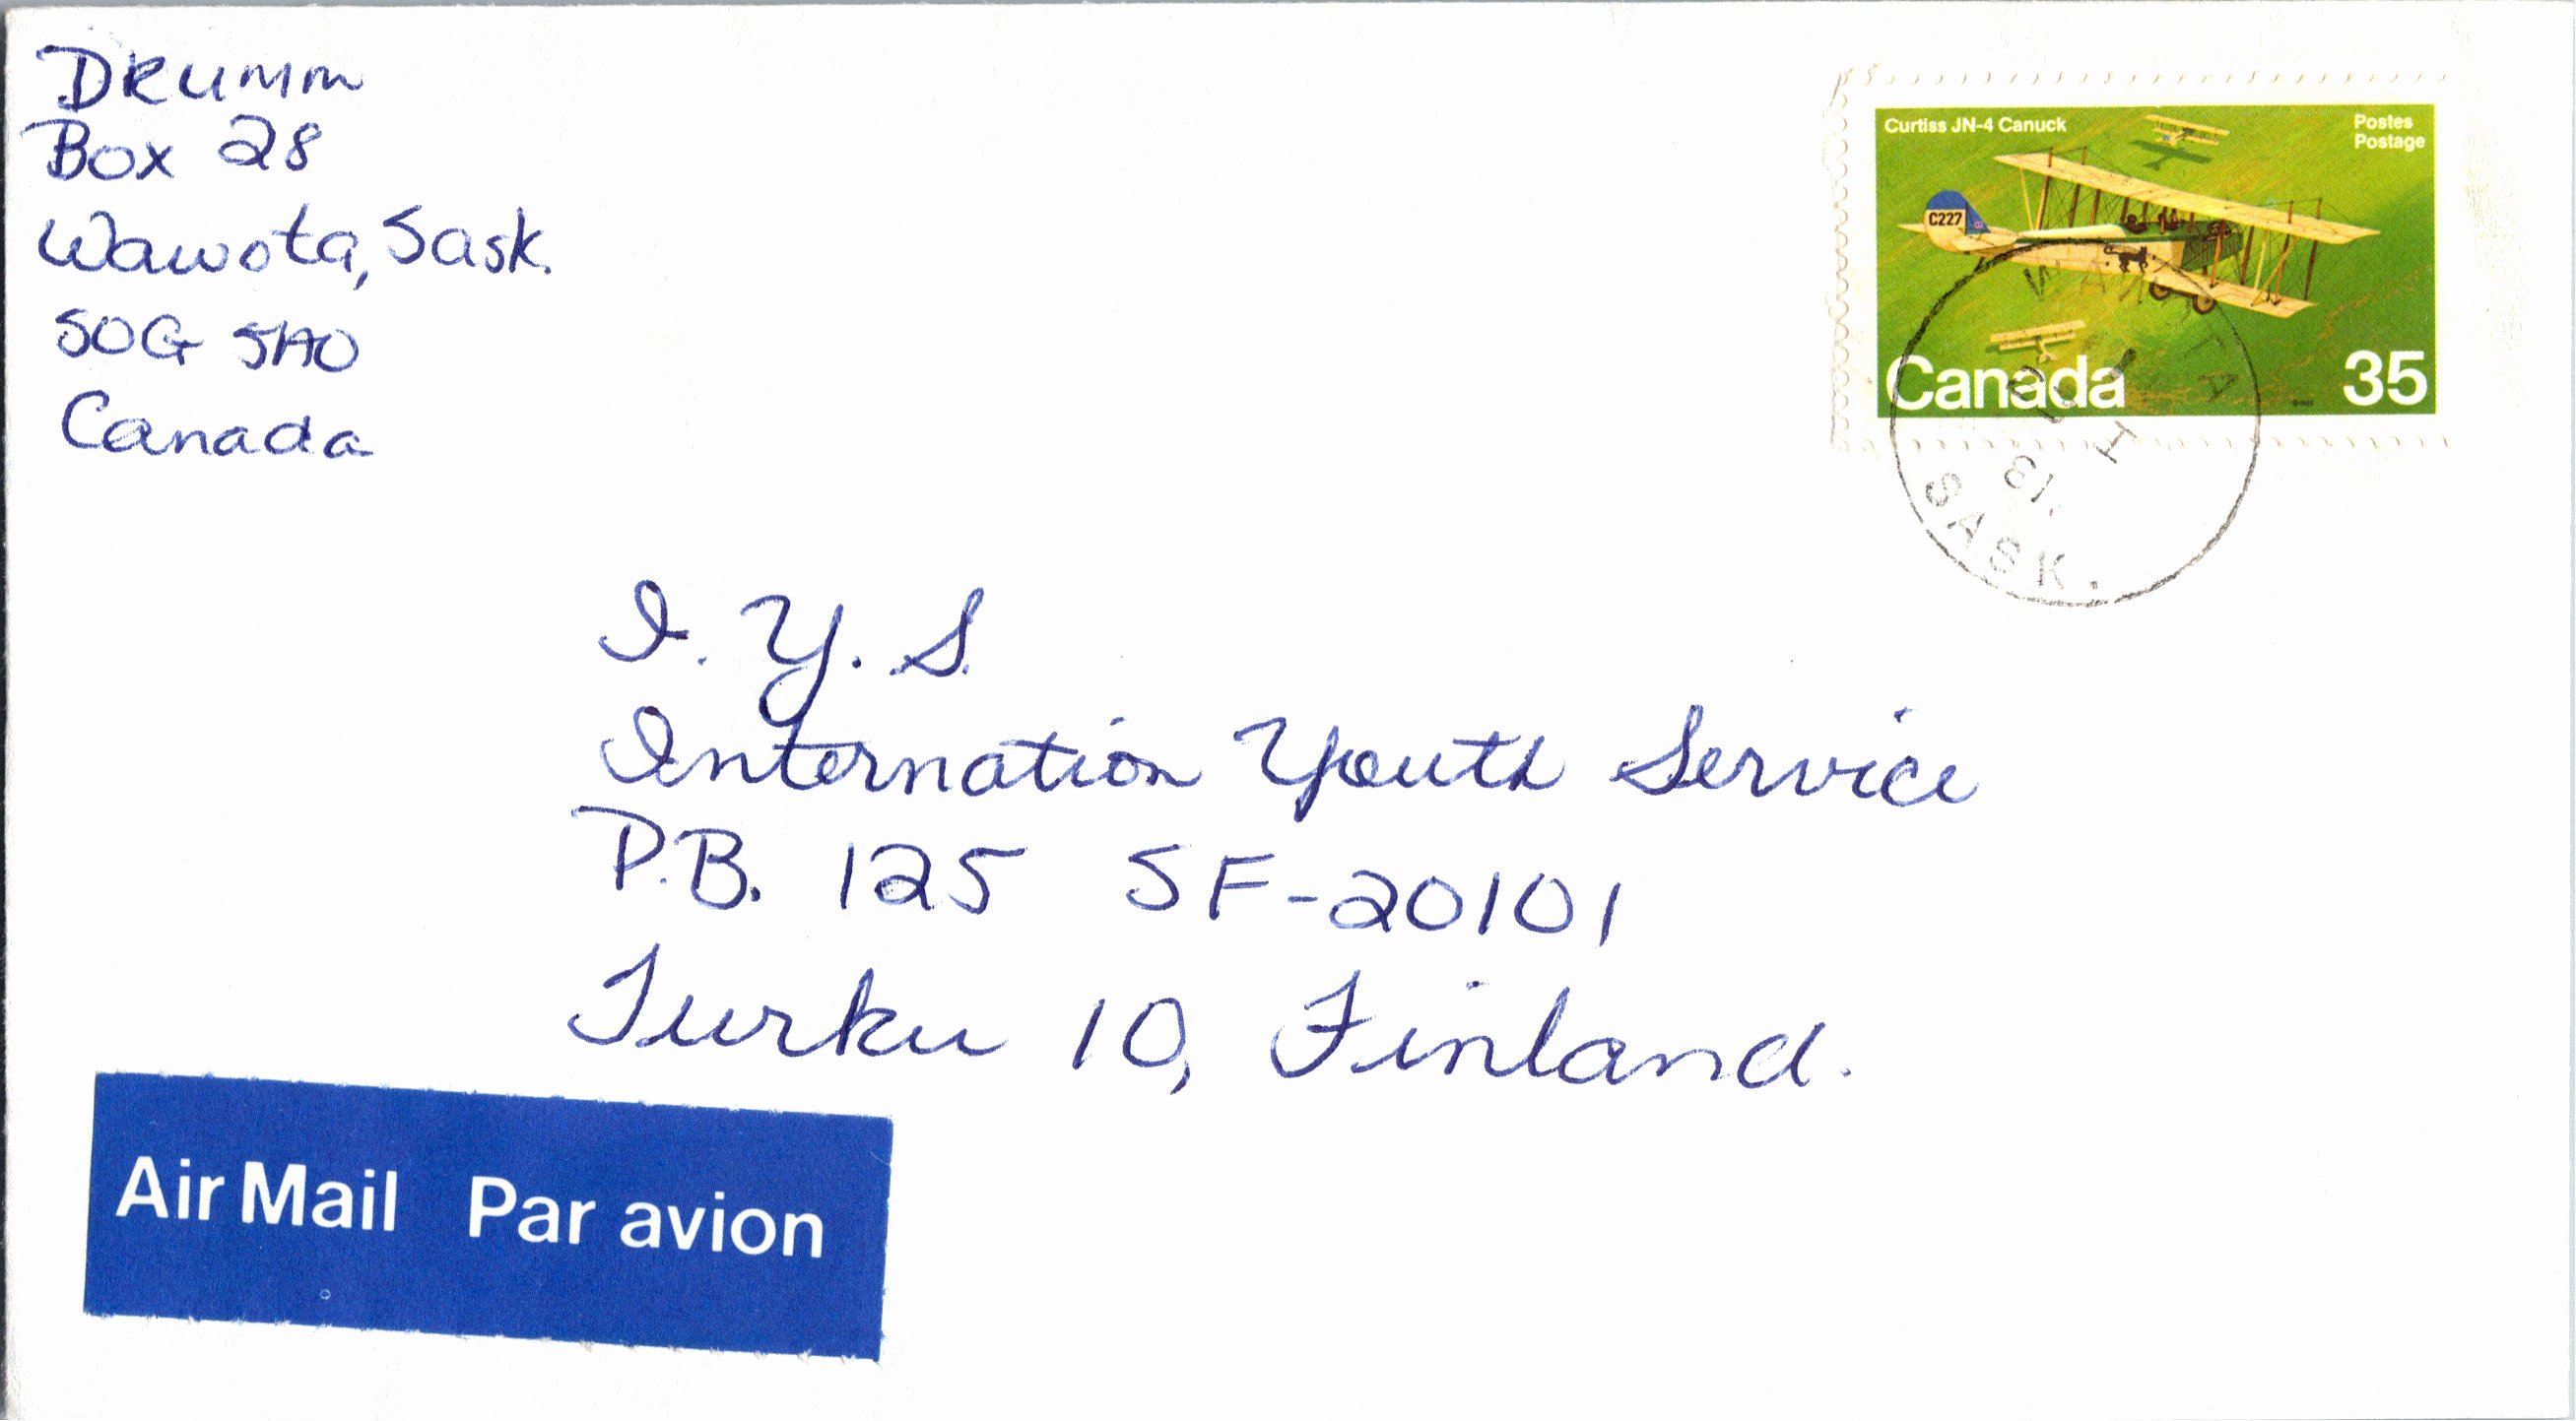 Drumm
Box 28
Wawota, Sask.
S0G 5A0
Canada
Curtiss JN-4 Canuck
Postes
Postage
C227
Canada
35
WAWOTA
I
81
SASK.
I. Y. S.
Internation Youth Service
P.B. 125 SF-20101
Turku 10, Finland.
Air Mail Par avion